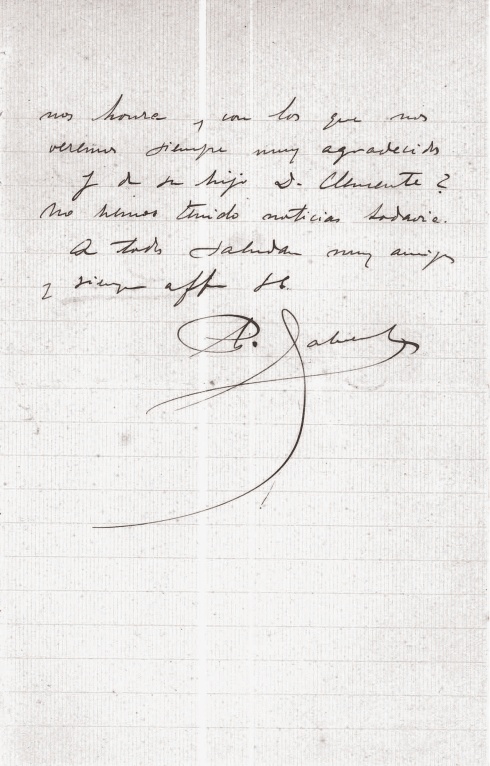 nos honra y con los que nos
veremos siempre muy agradecidos
Y de su hijo D. Clemente?
No hemos tenido noticias todavia.
A todos saludan muy amigos
y siempre affmo SS.